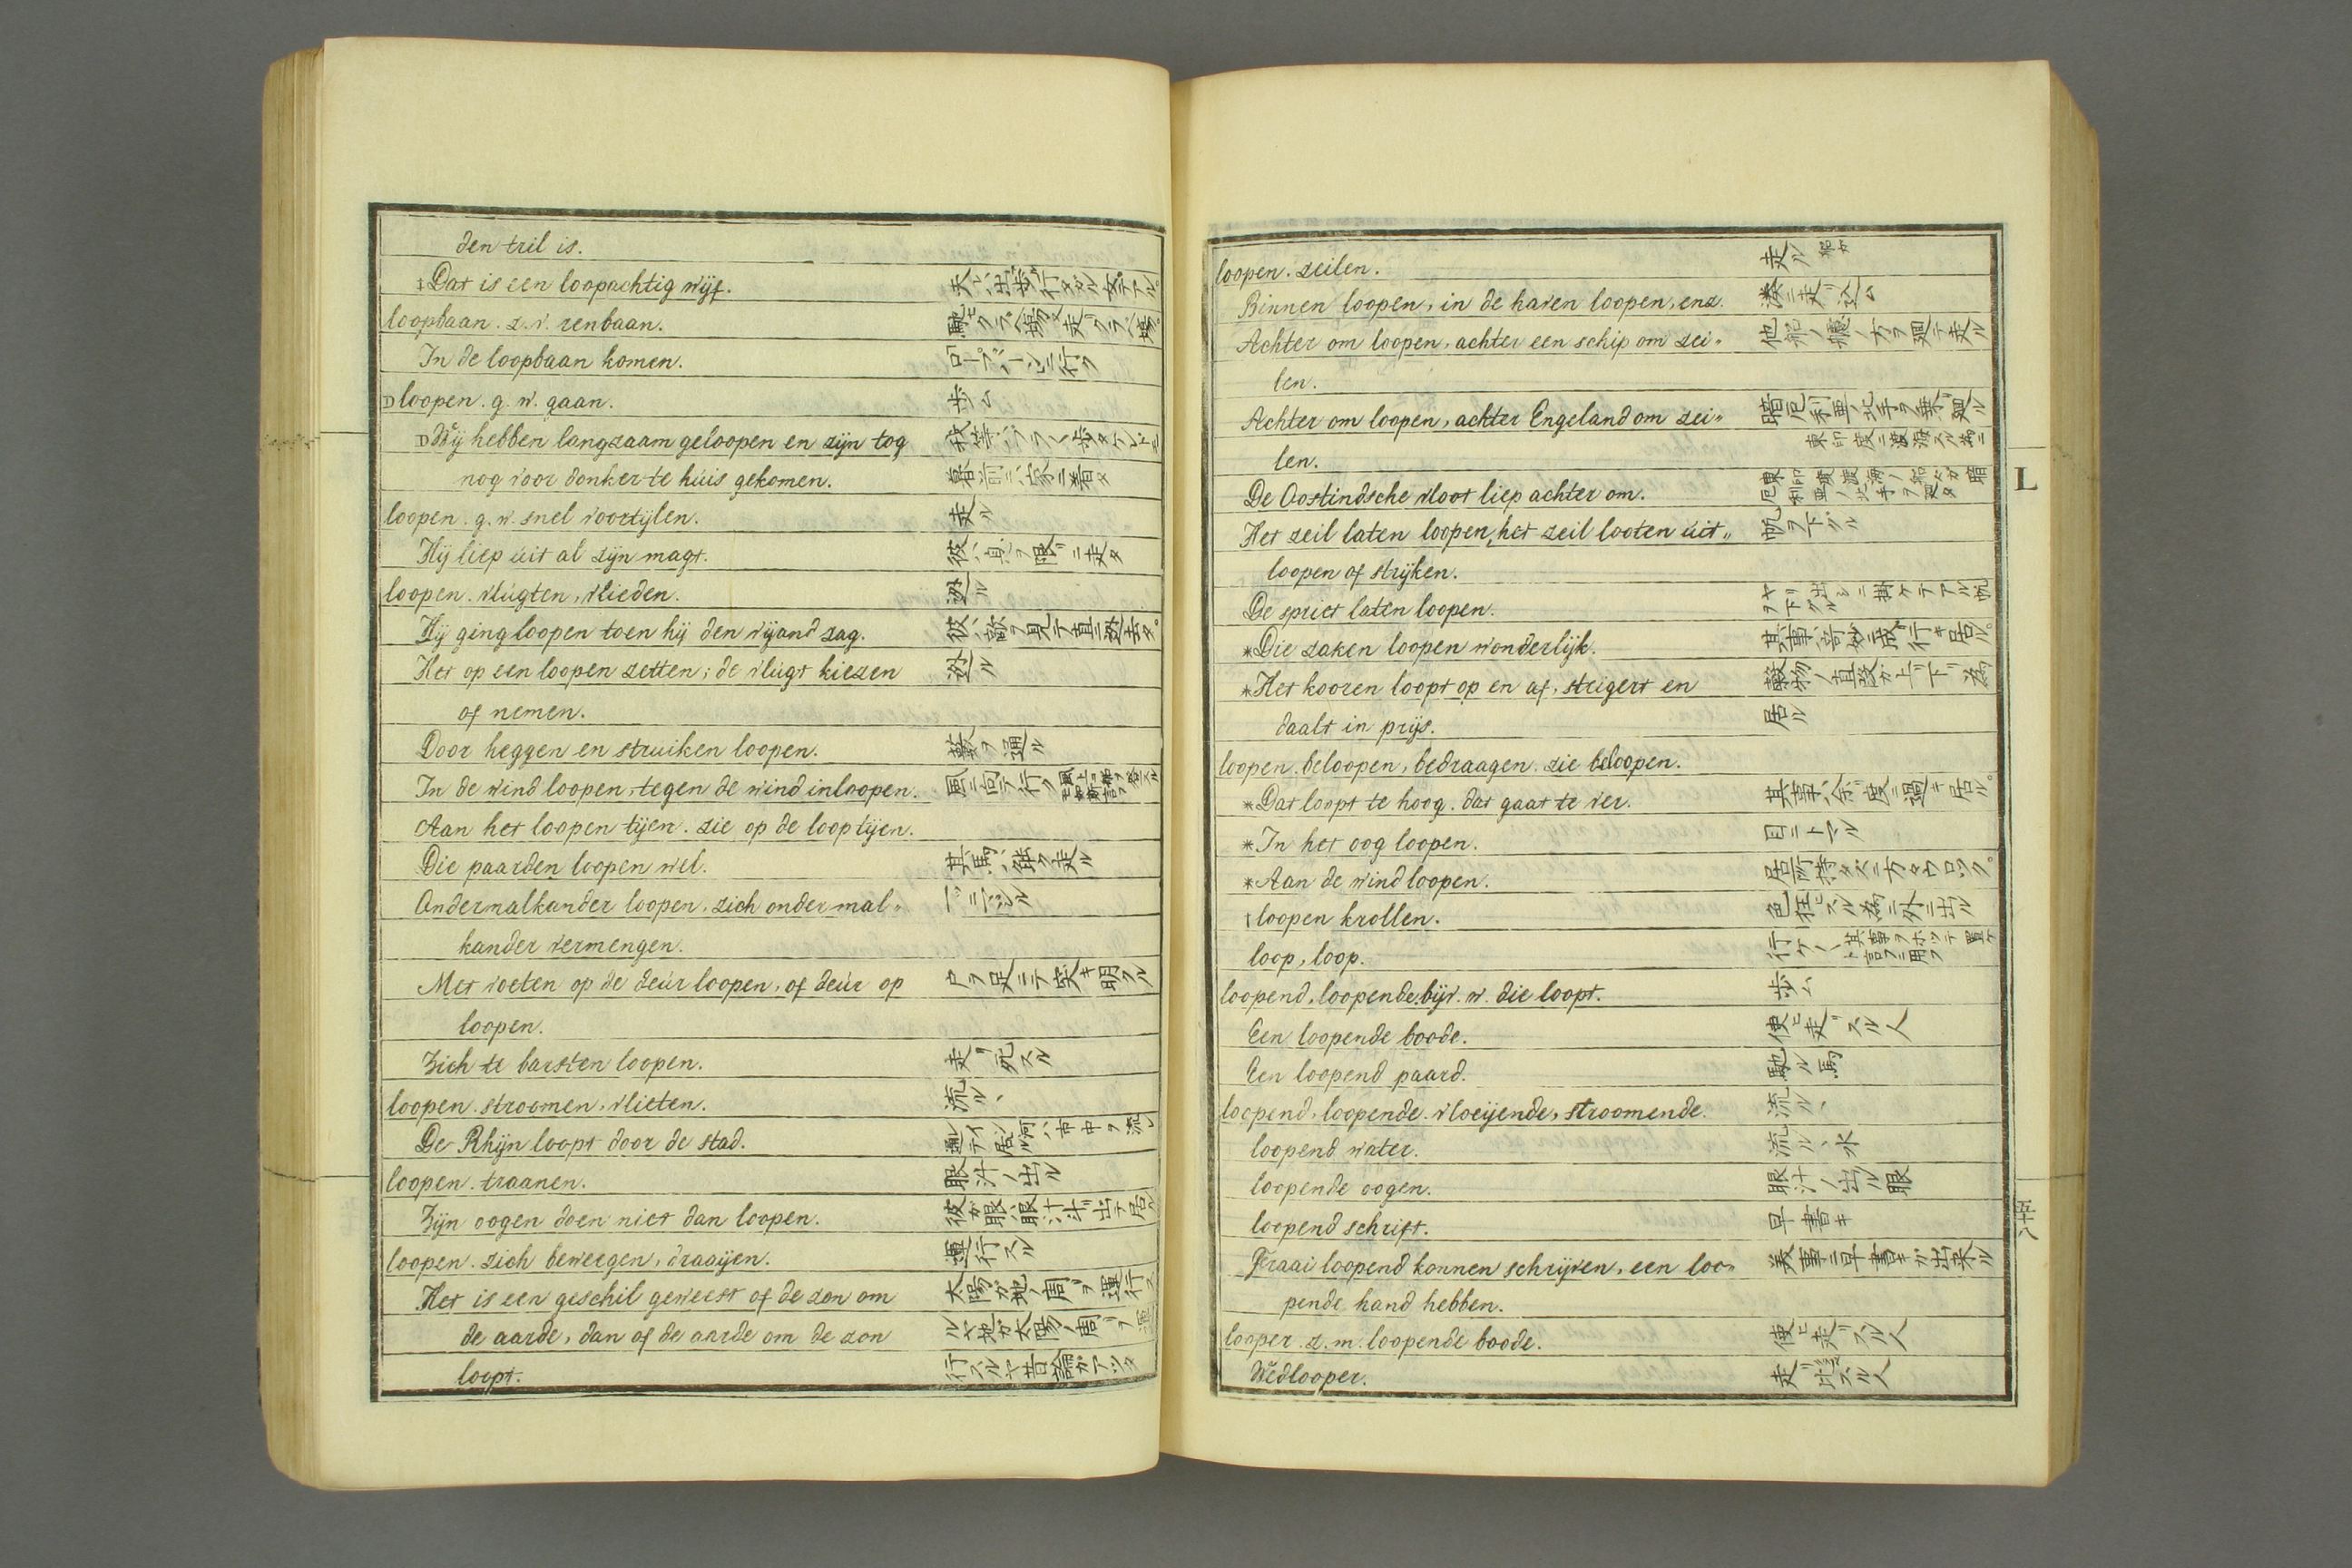 den tril is.
‡Dat is een loopachtig wijf.
loopbaan. z. v. renbaan.
In de loopbaan komen.
loopen. g. w. gaan. 歩ム
Wij hebben langzaam geloopen en zijn tog
nog voor donker te huis gekomen.
loopen. g. w. snel voortijlen. 走ル
Hij liep uit al zijn magt. 彼ハ息ヲ限リニ走タ
loopen. vlugten, vlieden. 逃ル
Hij ging loopen toen hij den vijand zag. 彼ハ敵ヲ見テ直ニ逃去タ。
Het op een loopen zetten; de vlugt kiezen 逃ル
of nemen.
Door heggen en struiken loopen. 藪ヲ通ル
In de wind loopen, tegen de wind inloopen. 風ニ向テ行ク
Aan het loopen tijen. zie op de loop tijen.
Die paarden loopen wel. 其馬ハ能ク走ル
Ondermalkander loopen. zich onder mal„
kander vermengen.
Met voeten op de deúr loopen, of deúr op 戸ヲ足ニテ突キ明クル
loopen.
Zich te barsten loopen. 走リ死スル
loopen. stroomen, vlieten. 流ルヽ
De Rhijn loopt door de stad.
loopen. traanen. 眼汁ノ出ル
Zijn oogen doen niet dan loopen.
loopen. zich beweegen, draaijen. 運行スル
Het is een geschil geweest of de zon om 太陽ガ地ノ周リヲ運行ス
de aarde, dan of de aarde om de zon ルヤ地ガ太陽ノ周リヲ運
loopt. 行スルヤ昔論ガアツタ
loopen. zeilen. 走ル 船ガ
Binnen loopen, in de haven loopen, enz. 湊ニ走リ込ム
Achter om loopen, achter een schip om zei„ 他船ノ艫ノ方ヲ廻テ走ル
len.
Achter om loopen, achter Engeland om zei„ 暗厄利亜ノ北手ヲ乗リ廻ル
len. 東印度ニ渡海スル為ニ
De Oostindsche vloot liep achter om.
Het zeil laten loopen, het zeil looten uit„ 帆ヲ下ゲル
loopen of strijken.
De spriet laten loopen.
*Die zaken loopen wonderlijk.
*Het kooren loopt op en af, steigert en 穀物ノ直段ガ上リ下リ為
daalt in prijs. 居ル
loopen. beloopen, bedraagen. zie beloopen.
*Dat loopt te hoog. dat gaat te ver. 其事ハ余リ度ニ過キ居ル。
*In het oog loopen. 目ニトマル
*Aan de wind loopen.
‡loopen krollen. 色狂ヒスル為ニ外ニ出ル
loop, loop.
loopend, loopende. bijv. w. die loopt. 歩ム
Een loopende boode. 使ヒ走リスル人
Een loopend paard. 馳ル馬
loopend, loopende. vloeijende, stroomende. 流ルヽ
loopend water. 流ルヽ水
loopende oogen. 眼汁ノ出ル眼
loopend schrift. 早書キ
Fraai loopend konnen schrijven, een loo„ 美事ニ早書キガ出来ル
pende hand hebben.
looper. z. m. loopende boode. 使ヒ走リスル人
Wedlooper. 走リ比ベスル人
L